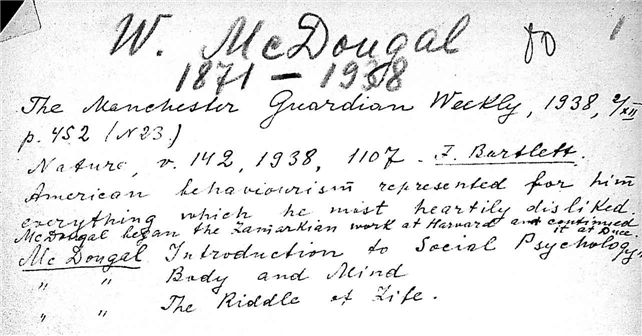 W. McDougal 80 1
1871 — 1938
The Manchester Guardian Weekly, 1938, 2/XII
p. 452 (N23.)
Nature, v. 142, 1938, 1107. F. Bartlett.
American behaviourism represented for him
everything which he most heartily disliked.
McDougal began the Lamarkian work at Harvard and continued
it at Duce.
Mc Dougal Introduction to Social Psychology,
" " Body and Mind
" " The Riddle of Life.